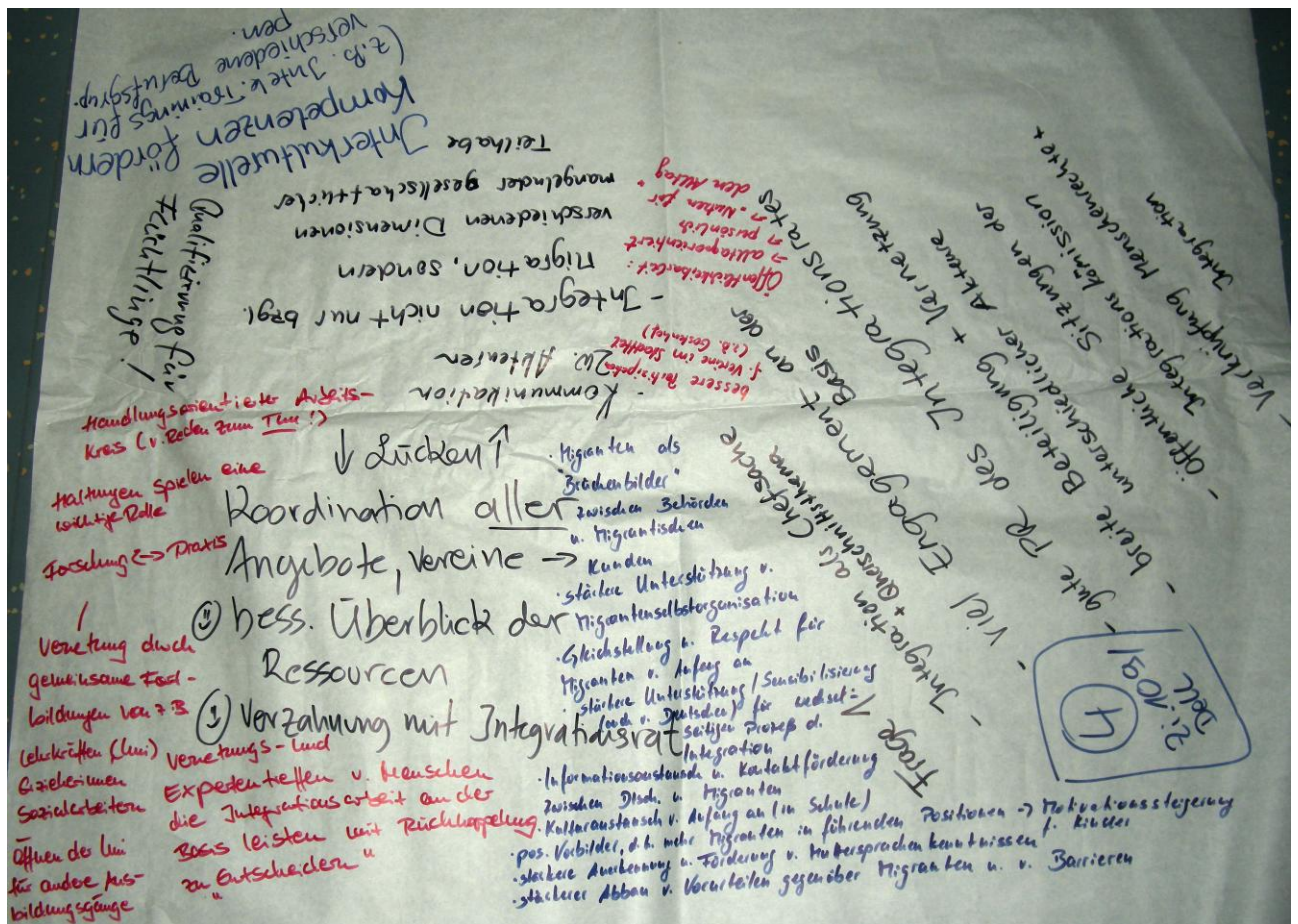 Interkulturelle
Kompetenzen fördern
(z.B. Interk. Trainings für
verschiedene Berufsgrup-
pen.
Qualifizierung für
Flüchtlinge!
- Kommunikation
zw. Akteuren
- Integration nicht nur bzgl.
Migration, sondern
verschiedenen Dimensionen
mangelnder gesellschaftlicher
Teilhabe
bessere
f. Vereine im
(z.B. Gostenhof)
Öffentlichkarbeit:
→ alltagorienhert
→ persönlich
→ "Nutzen für
den Alltag"
Frage 1
- Integration als Chefsache
+ Querschnittsthema
- viel Engagement an der
Basis
- gute PR des Integrationsrates
- breite Beteiligung + Vernetzung
unterschiedlicher Akteure
- öffentliche Sitzungen der
Integrationskomission
- Verknüpfung Menschenrechte +
Integration
4
Zi: 109a
Dell
Handlungsorientierter Arbeits-
kreis (v. Reden zum Tun!)
Haltungen spielen eine
wichtige Rolle
Forschung <-> Praxis
Vernetzung durch
gemeinsame Fort-
bildungen von z B
Lehrkräften (Uni)
Erzieherinnen
Sozialarbeitern
Öffnen der Uni
für andere Aus-
bildungsgänge
↓ Lücken ↑
Koordination aller
Angebote, Vereine →
bess. Überblick der
Ressourcen
Verzahnung mit Integrationsrat
Vernetzungs- und
Expertentreffen v. Menschen
die Integrationsarbeit an der
Basis leisten mit Rückkoppelung
zu "Entscheidern"
· Migranten als
"Brückenbilder"
zwischen Behörden
u. Migrantischen
Kunden
· stärkere Unterstützung v.
Migrantenselbstorganisation
· Gleichstellung u. Respekt für
Migranten v. Anfang an
· stärkere Unterstützung / Sensibilisierung
(auch v. Deutschen) für wechsel=
seitigen Prozeß d.
Integration
· Informationsaustausch u. Kontaktförderung
zwischen Dtsch. u. Migranten
· Kulturaustausch v. Anfang an (in Schule)
· pos. Vorbilder, d.h. mehr Migranten in führenden Positionen → Motivationssteigerung
f. Kinder
· stärkere Anerkennung u. Förderung v. Muttersprachenkenntnissen
· stärkerer Abbau v. Vorurteilen gegenüber Migranten u. v. Barrieren